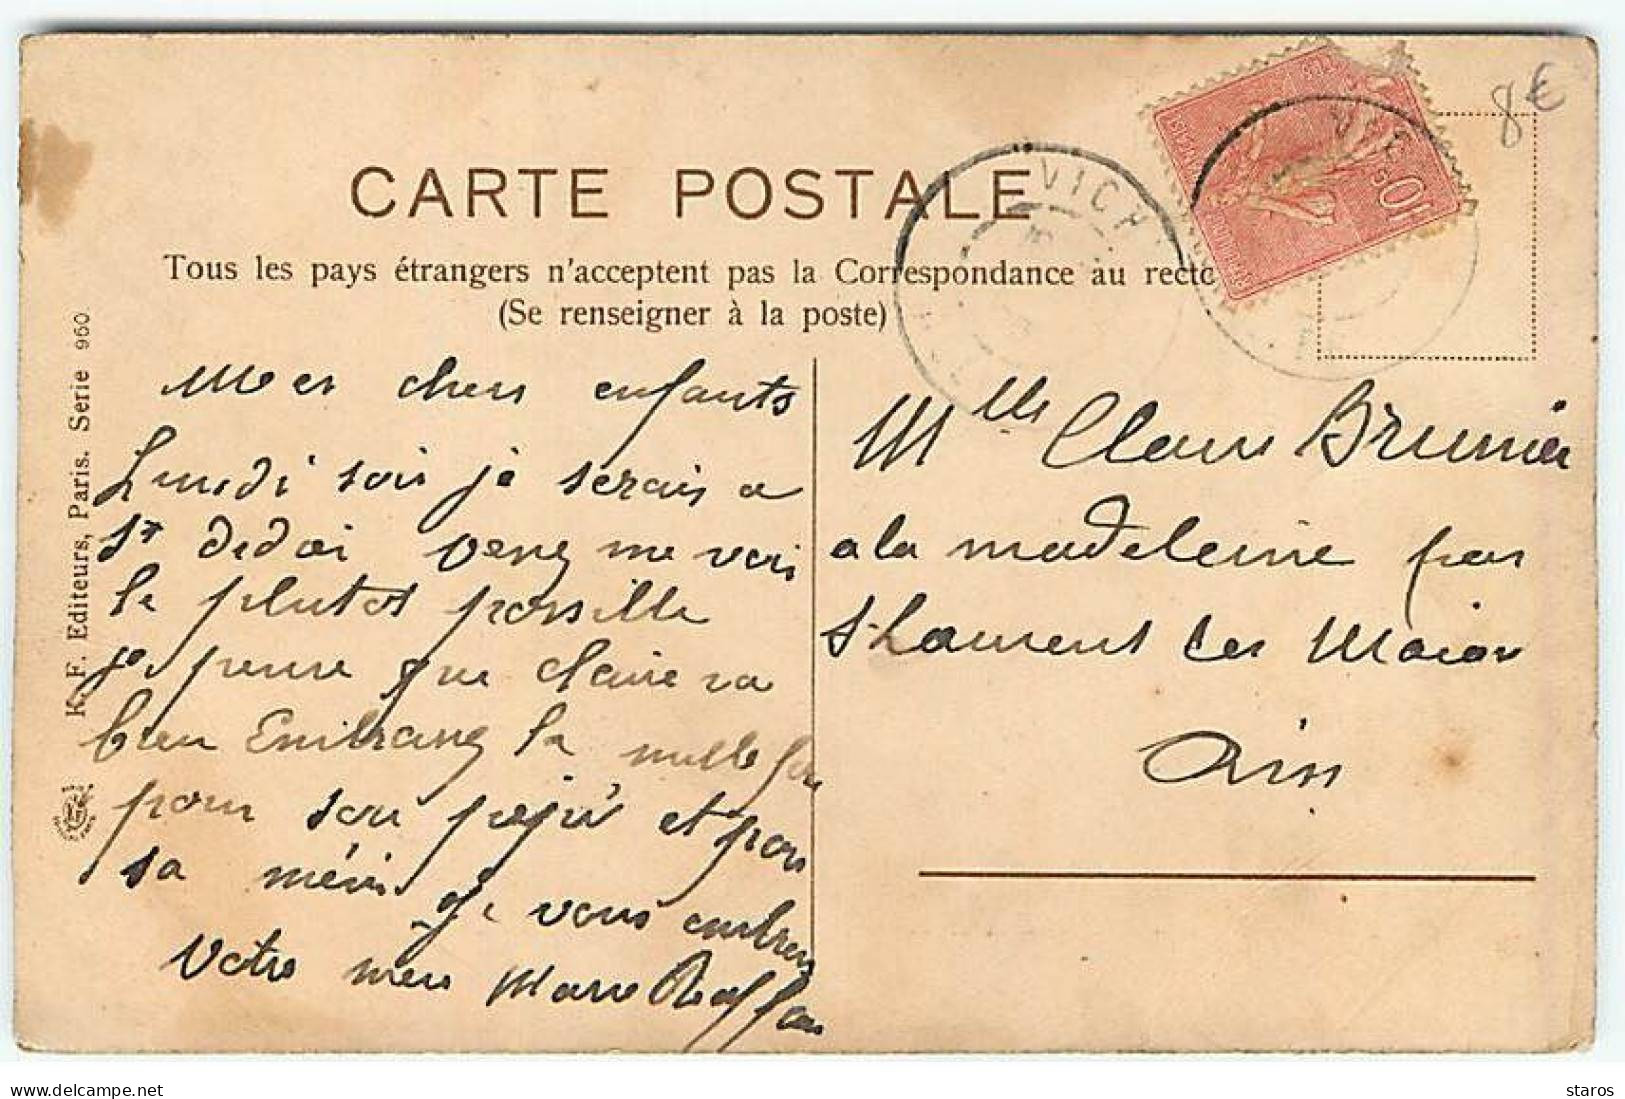 CARTE POSTALE
Tous les pays étrangers n'acceptent pas la Correspondance au recto
(Se renseigner à la poste)
K. F. Editeurs, Paris. Serie 960.
VICHY
8€
Mes chers enfants
Lundi soir je serais a
St didai veng me voir
le plutot possille
je pense que claire va
bien Embrang la mille foi
pour son pepé et pour
sa mémé Je vous embrens
Votre mere Marie Raffan
Mlle Claire Brunier
a la madeleine par
St Laurent les Macon
Ain
www.delcampe.net
staros